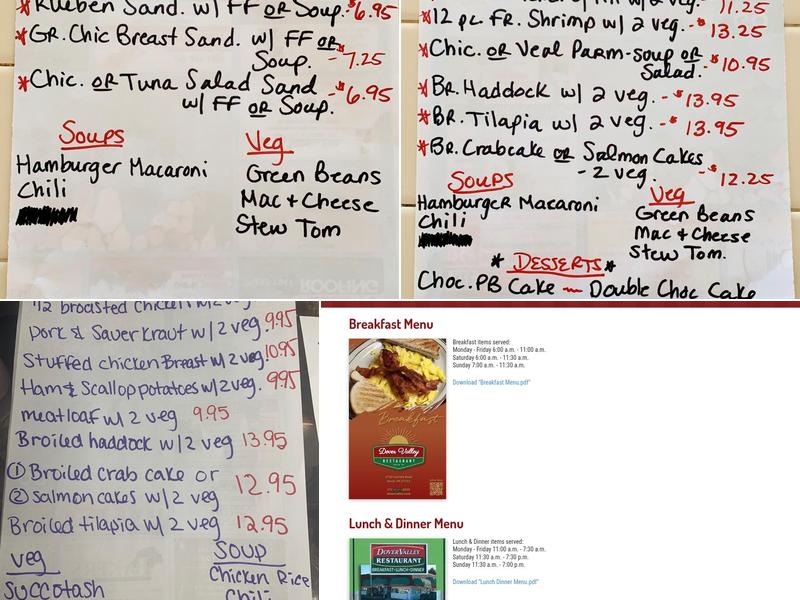 *Rueben Sand. w/ FF OR Soup. $6.95
*GR. Chic Breast Sand. w/ FF OR
Soup. - $7.25
*Chic. OR Tuna Salad Sand
w/ FF OR Soup. - $6.95
Soups
Hamburger Macaroni
Chili
Veg
Green Beans
Mac + Cheese
Stew Tom
11.25
*12 pc FR. Shrimp w/ 2 veg. - $13.25
*Chic. OR Veal Parm - soup OR
Salad. - $10.95
*BR. Haddock w/ 2 veg. - $13.95
*BR. Tilapia w/ 2 veg. - $13.95
*BR. Crabcake OR Salmon Cakes
- 2 veg. - $12.25
Soups
Hamburger Macaroni
Chili
Veg
Green Beans
Mac + Cheese
Stew Tom.
* DESSERTS *
Choc. PB Cake — Double Choc Cake
1/2 broasted chicken w/ 2 veg.
Pork & Sauerkraut w/ 2 veg. 9.95
Stuffed chicken Breast w/ 2 veg. 10.95
Ham & Scallop potatoes w/ 2 veg. 9.95
meatloaf w/ 2 veg 9.95
Broiled haddock w/ 2 veg 13.95
① Broiled crab cake or
② salmon cakes w/ 2 veg 12.95
Broiled tilapia w/ 2 veg 12.95
veg
Succotash
Soup
Chicken Rice
Chili
Breakfast Menu
Breakfast items served:
Monday - Friday 6:00 a.m. - 11:00 a.m.
Saturday 6:00 a.m. - 11:30 a.m.
Sunday 7:00 a.m. - 11:30 a.m.
Download "Breakfast Menu.pdf"
Breakfast
Dover Valley
RESTAURANT
Lunch & Dinner Menu
Lunch & Dinner items served:
Monday - Friday 11:00 a.m. - 7:30 p.m.
Saturday 11:30 a.m. - 7:30 p.m.
Sunday 11:30 a.m. - 7:00 p.m.
Download "Lunch Dinner Menu.pdf"
DOVER VALLEY
RESTAURANT
BREAKFAST-LUNCH-DINNER